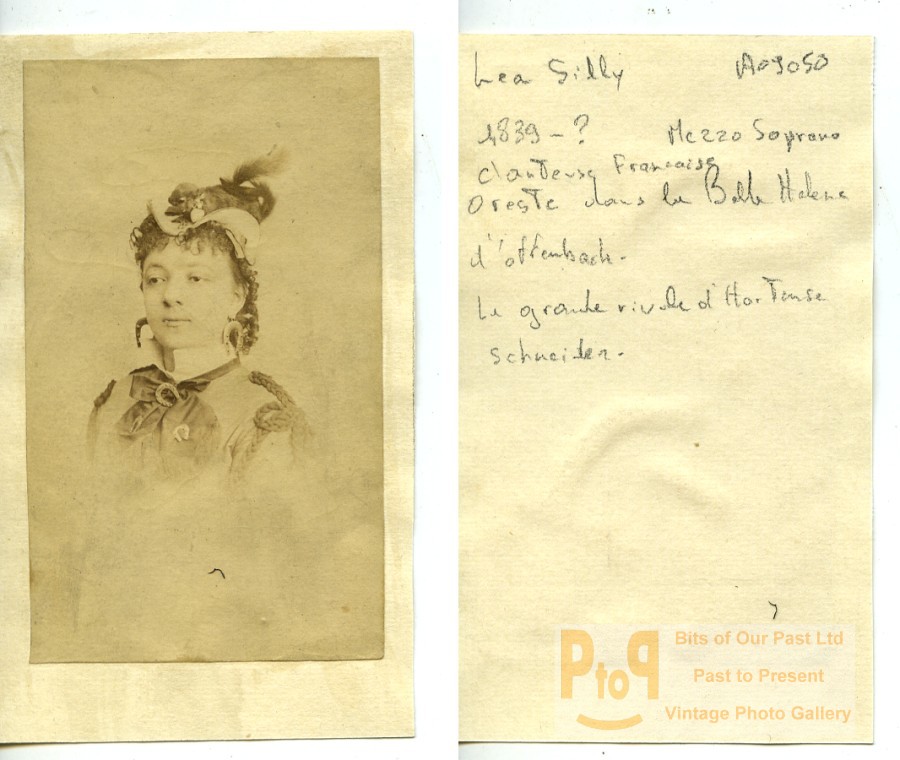 Lea Silly A09050
1839-? Mezzo Soprano
chanteuse Francaise
Oreste dans la Belle Helene
d'offenbach.
La grande rivale d'Hortense
schneider.
PtoP
Bits of Our Past Ltd
Past to Present
Vintage Photo Gallery